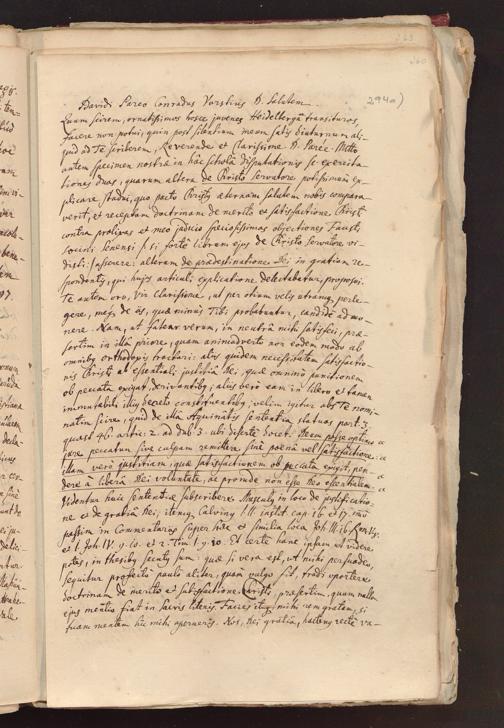 Davidi Pareo Conradus Vorstius D. Salutem. 294a)
Quum scirem, ornatissimos hosce juvenes Heidelbergâ transituros,
facere non potui, quin post silentium meum satis diuturnum ali-
quid ad Te scriberem, Reverende et Clarissime D. Paree. Mitto
autem specimen nostræ in hâc scholâ disputationis se exercita-
tiones duas, quarum alteram de Christo Servatore potissimum ex-
plicare studui, quo pacto Christus æternam salutem nobis compara-
verit, et receptam doctrinam de merito et satisfactione Christi
contra prolixas et meo judicio speciosissimas objectiones Fausti
Socini Senensis (si forte librum ejus de Christo Servatore vi-
disti) asserere: alteram de prædestinatione Dei in gratiam re-
spondentis, qui hujus articuli explicatione delectabatur, proposui.
Te autem oro, Vir Clarissime, ut per otium velis utramque perle-
gere, meque de iis, quæ minus Tibi probabuntur, candidè admo-
nere. Nam, ut fatear verum, in neutrâ mihi satisfeci, præ-
sertim in illâ priore, quum animadverto non eodem modo ab
omnibus orthodoxis tractari: aliis quidem necessitatem satisfactio-
nis Christi ab essentiali justitiâ Dei, quæ omnino punitionem
ob peccata exigat, derivantibus; aliis verò eam in libero et tamen
immutabili illius decreto constituentibus; velim igitur abs Te nomi-
natim scire, quid de illâ Aquinatis sententiâ statuas part. 3.
quæst. 46. artic. 2. ad dub. 3. ubi disertè docet: Deum posse optimo
jure peccatum sive culpam remittere sine poenâ vel satisfactione:
illam verò justitiam, quæ satisfactionem ob peccata exigit, pen-
dere à liberâ Dei voluntate, ac proinde non esse Deo essentialem.
Videntur huic sententiæ subscribere Musculus in loco de justificatio-
ne et de gratiâ Dei; itemque Calvinus l. II. instit. cap. 16. et 17. imò
passim in Commentariis super hæc et similia loca Joh. III. 16,
et 1. Joh. IV. 9. 10. et 2. Tim. 1. 9. 10. Et certe hanc ipsam ut videre
potes, in thesibus secutus sum: quæ si vera est, ut mihi persuadeo,
sequitur profectò paulò aliter, quàm vulgo fit, tradi oportere
doctrinam de merito et satisfactione Christi, præsertim, quum nulla
ejus mentio fiat in sacris literis. Facies itaque mihi rem gratam, si
tuam mentem hîc mihi aperueris. Nos, Dei gratiâ, hactenus rectè va-